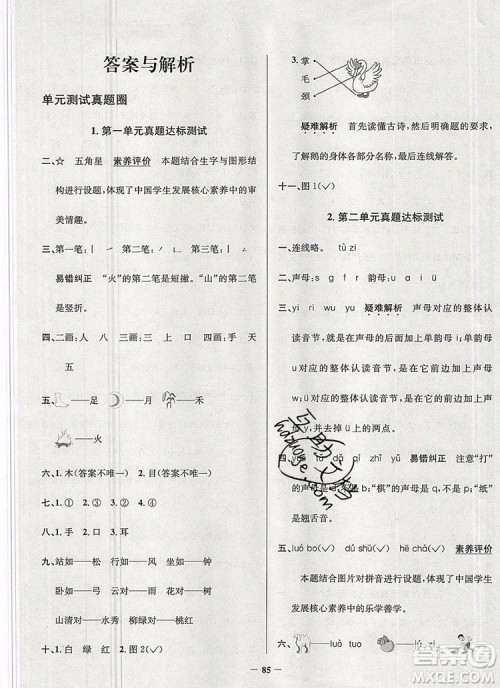 答案与解析
单元测试真题圈
1. 第一单元真题达标测试
二、☆ 五角星 素养评价 本题结合生字与图形结
构进行设题,体现了中国学生发展核心素养中的审
美情趣。
三、第一笔:丨 第二笔: 第三笔:丨 第四笔:一
易错纠正 “火”的第二笔是短撇。“山”的第二笔
是竖折。
四、二画:人 八 三画:三 上 口 四画:手 天
五
五、——足 ——月 ——禾
——火
六、1. 木(答案不唯一) 2. 目(答案不唯一)
七、1. ① 2. ③ 3. ② 4. ④
八、1. 手 2. 口 3. 耳
九、站如——松 行如——风 坐如——钟
卧如——弓 云对——雨 花对——树
山清对——水秀 柳绿对——桃红
十、1. 白 绿 红 2. 图2(√)
3. 掌
毛
颈
疑难解析 首先读懂古诗,我们就能准确地了
解了鹅的身体各部分名称,最后连线解答。
十一、图1(√)
2. 第二单元真题达标测试
一、连线略。 tù zi
二、声母:s g f r 韵母:i ü u
三、yi ri wu yu 疑难解析 声母对应的整体认
读音节,是在它的后面加上单韵母i;单韵母i、u
对应的整体认读音节,是在它的前边加上声母
y、w;单韵母ü对应的整体认读音节,是在它的前边加上声
母y,并去掉ü上的两点。
易错纠正 注意“打”
的声母是d,不是b;“棋”的声母是q,不是p;“纸”是
翘舌音。
五、luó bo dú shū hē chá 素养评价
本题结合图片对拼音进行设题,体现了中国学生
发展核心素养中的乐学善学。
六、——luò tuo ——jú zi
85
互助文档
hazuoge.com
作业圈
答案圈
MXQE.COM